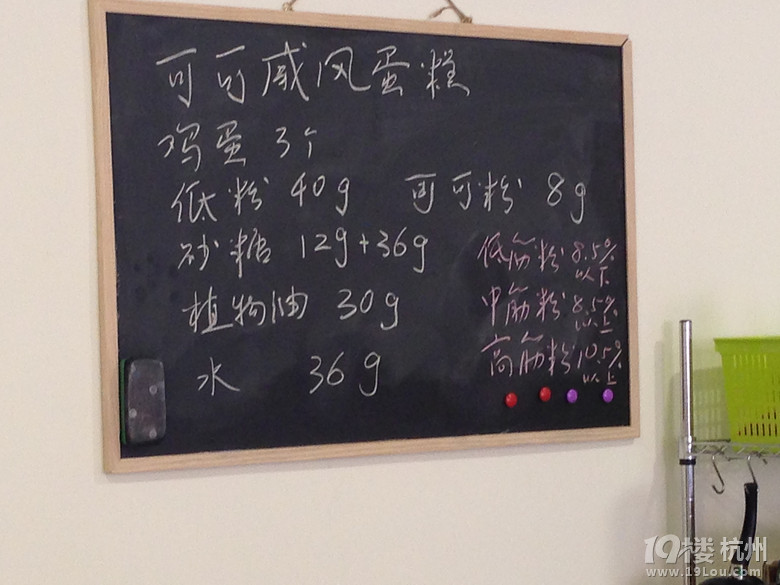 可可戚风蛋糕
鸡蛋 3个
低粉 40g 可可粉 8g
砂糖 12g+36g
植物油 30g
水 36g
低筋粉 8.5%
以下
中筋粉 8.5%
以上
高筋粉 10.5%
以上
19楼杭州
www.19lou.com